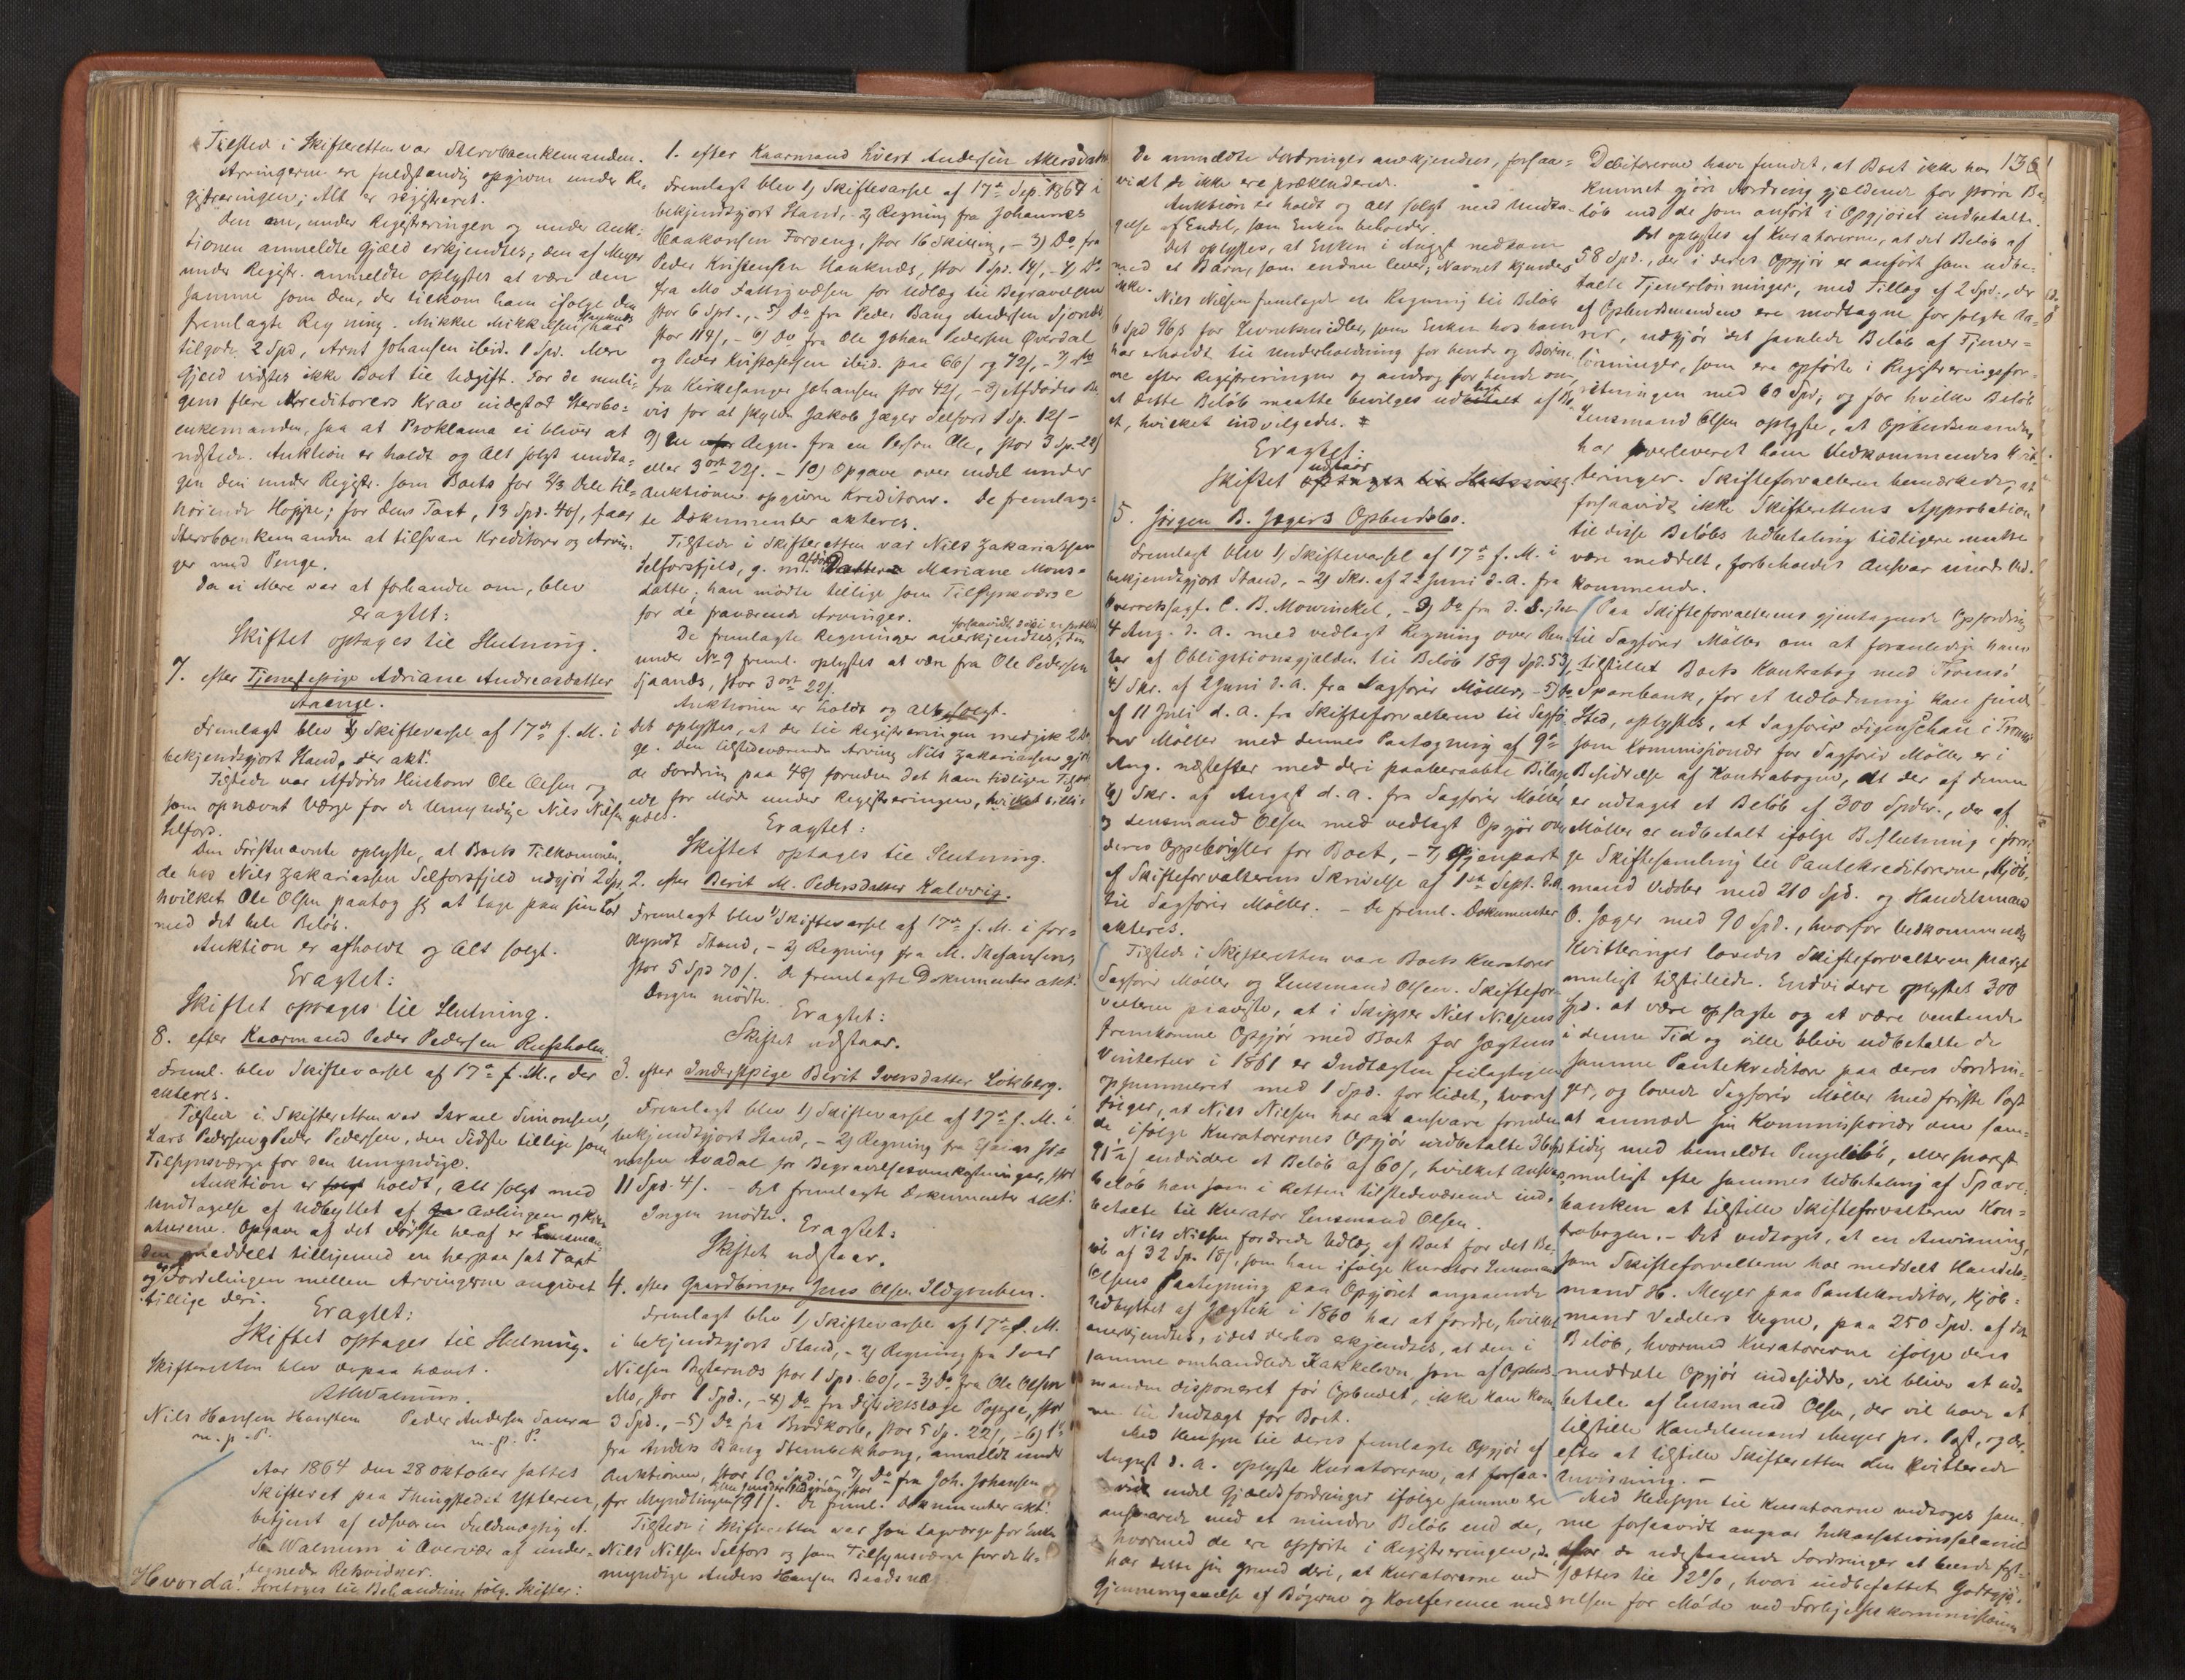 Tilsted i Skifteretten var Sterboenkemanden.
Arvingerne ere fuldstændig opgivne under Re-
gistreringen; Alt er registreret.
Den under Registreringen og under Auk-
tionen anmeldte Gjæld erkjendtes; den af Meyer
under Registr. anmeldte oplystes at være den
samme som den, der tilkom ham ifølge den
fremlagte Regning. Mikkel Mikkelsen Hauknæs har
tilgode 2 Spd, Arnt Johansen ibid. 1 Spd. Mere
Gjæld vidstes ikke Boet til Udgift. For de muli-
gens flere Kreditorers Krav indestod Sterbo-
enkemanden, saa at Proklama ei bliver at
udstede. Auktion er holdt og Alt solgt undta-
gen den under Registr. som Boets for 2/3 Dele til-
hørende Hoppe; for dens Taxt, 13 Spd. 40 s, faar
Sterboenkemanden at tilsvare Kreditorer og Arvin-
ger med Penge.
Da ei Mere var at forhandle om, blev
eragtet:
Skiftet optages til Slutning.
7. efter Tjenestepige Adriane Andreasdatter
Aaenge.
Fremlagt blev Skiftevarsel af 17de f. M. i
bekjendtgjort Stand, der akt.
Tilstede var Afdødes Husbond Ole Olsen og
som opnævnt Værge for de Umyndige Nils Nilsen
Selfors.
Den Førstnævnte oplyste, at Boets Tilkommen-
de hos Nils Zakariassen Selforsfjeld udgjør 2 Spd,
hvilket Ole Olsen paatog sig at tage paa sin Lod
med det hele Beløb.
Auktion er afholdt og Alt solgt.
Eragtet:
Skiftet optages til Slutning.
8. efter Kaarmand Peder Pedersen Rufsholm.
Freml. blev Skiftevarsel af 17de f. M., der
akteres.
Tilstede i Skifteretten var Israel Simonsen,
Lars Pedersen og Peder Pedersen, den Sidste tillige som
Tilsynsværge for den Umyndige.
Auktion er holdt, Alt solgt med
Undtagelse af Udbyttet af Avlingen og Krea-
turerne. Opgave af det Første heraf er Lensman-
den meddelt tilligemed en herpaa sat Taxt
og er Fordelingen mellem Arvingerne angivet
tillige deri.
Eragtet:
Skiftet optages til Slutning.
Skifteretten blev derpaa hævet.
AHWalnum.
Nils Hansen Hanstein Peder Andersen Saura
m. p. P. m. p. P.
Aar 1864 den 28 Oktober sattes
Skifteret paa Thingstedet Ytteren,
betjent af edsvoren Fuldmægtig A.
H. Walnum i Overvær af under-
tegnede Retsvidner.
Hvorda: Foretoges til Behandling følg. Skifter:
1. efter Kaarmand Sivert Andersen Akersdalen
Fremlagt blev 1) Skiftevarsel af 17de Sep. 1864 i
bekjendtgjort Stand, - 2) Regning fra Johannes
Haakonsen Forseng, stor 16 Skilling, - 3) Do fra
Peder Kristensen Hauknæs, stor 1 Spd. 14 s, - 4) Do
fra Mo Fattigvæsen for Udlæg til Begravelsen
stor 6 Spd., - 5) Do fra Peder Bang Andersen Sjonbt.
stor 114 s, - 6) Do fra Ole Johan Pedersen Øverdal
og Peder Kristoffersen ibid. paa 66 s og 72 s, - 7) do
fra Kirkesanger Johansen stor 42 s, - 8) Afdødes Be-
vis for at skylde Jakob Jæger Selfors 1 Sp. 12 s -
9) En Regn. fra en Person Ole, stor 3 Sp. 22 s
eller 3 ort 22 s. - 10) Opgave over endel under
Auktionen opgivne Kreditorer. De fremlag-
te Dokumenter akteres.
Tilstede i Skifteretten var Nils Zakariassen
Selforsfjeld, g. m. Afdødes Datter Mariane Mons-
datter; han mødte tillige som Tilsynsværge
for de fraværende Arvinger.
De fremlagte Regninger anerkjendtes, den
under No 9 freml. oplystes at være fra Ole Pedersen
Sjaanæs, stor 3 ort 22 s.
Auktionen er holdt og alt solgt.
Det oplystes, at der til Registreringen medgik 2 Da-
ge. Den tilstedeværende Arving Nils Zakariassen gjor-
de Fordring paa 48 s foruden det ham tidligere Tilstaa-
ede for Møde under Registreringen, hvilket billi-
gedes.
Eragtet:
Skiftet optages til Slutning.
2. efter Berit M. Pedersdatter Kalvvig.
Fremlagt blev 1) Skiftevarsel af 17de f. M. i for-
kyndt Stand, - 2) Regning fra M. Stefansen,
stor 5 Spd 70 s. De fremlagte Dokumenter akt.
Ingen mødte.
Eragtet:
Skiftet udstaar.
3. efter Inderstpige Berit Iversdatter Løkberg.
Fremlagt blev 1) Skiftevarsel af 17de f. M. i
bekjendtgjort Stand, - 2) Regning fra Esaias
Avadal for Begravelsesomkostninger, stor
11 Spd. 4 s. - De fremlagte Dokumenter akt.
Ingen mødte.
Eragtet:
Skiftet udstaar.
4. efter Gaardbruger Jens Olsen Ildgruben.
Fremlagt blev 1) Skiftevarsel af 17de f. M.
i bekjendtgjort Stand, - 2) Regning fra Iver
Nilsen stor 1 Spd. 60 s, - 3) Do fra Ole Olsen
Mo, stor 1 Spd., - 4) Do fra Distriktslæge Poppe, stor
3 Spd., - 5) Do fra Brodkorb, stor 5 Sp. 22 s, - 6) Do
fra Anders Bang Stenbekhaug, anmeldt under
Auktionen, stor 10 Spd., - 7) Do fra Joh. Johansen
for Myndlingen, stor 91 s. De freml. Dokumenter akt.
Tilstede i Skifteretten var som Lagværge for Enken
Nils Nilsen Selfors og som Tilsynsværge for de U-
myndige Anders Hansen Baadsnæs
De anmeldte Fordringer anerkjendtes, forsaa-
vidt de ikke ere prækluderede.
Auktion er holdt og alt solgt med Undta-
gelse af Endel, som Enken beholder.
Det oplystes, at Enken i August nedkom
med et Barn, som endnu lever; Navnet kjendes
ikke.
Nils Nilsen fremlagde en Regning til Beløb
6 Spd 96 s for Levnetsmidler, som Enken hos ham
har erholdt til Underholdning for hende og Børne-
ne efter Registreringen og androg for hende om
at dette Beløb maatte bevilges udlagt af Bo-
et, hvilket indvilgedes.
Eragtet:
Skiftet udstaar
5. Jørgen B. Jægers Opbudsbo.
Fremlagt blev 1) Skiftevarsel af 17de f. M. i
bekjendtgjort Stand, - 2) Skr. af 22 Juni d. A. fra
Overretssagf. C. B. Mowinckel, - 3) Do fra d. S., dat.
4 Aug. d. A. med vedlagt Regning over Ren-
ter af Obligationsgjælden til Beløb 189 Spd. 53 s,
4) Skr. af 2 Juni d. A. fra Sagfører Møller, - 5) Do
af 11 Juli d. A. fra Skifteforvalteren til Sagfø-
rer Møller med dennes Paategning af 9de
Aug. næstefter med deri paaberaabte Bilage
6) Skr. af August d. A. fra Sagfører Møller
og Lensmand Olsen med vedlagt Opgjør over
deres Oppebørsler for Boet, - 7) Gjenpart
af Skifteforvalterens Skrivelse af 1ste Sept. d. A.
til Sagfører Møller. - De freml. Dokumenter
akteres.
Tilstede i Skifteretten var Boets Kuratorer
Sagfører Møller og Lensmand Olsen. Skiftefor-
valteren paaviste, at i Skipper Nils Nilsens
fremkomne Opgjør med Boet for Jægtens
Vintertur i 1861 er Indtægten feilagtigen
opsummeret med 1 Spd. for lidet, hvoraf
følger, at Nils Nilsen har at ansvare foruden
de ifølge Kuratorernes Opgjør indbetalte 36 Spd
91 1/2 s endvidere et Beløb af 60 s, hvilket Ansvars-
beløb han som i Retten tilstedeværende ind-
betalte til Kurator Lensmand Olsen.
Nils Nilsen fordrede Udlæg af Boet for det Be-
løb af 32 Sp. 18 s, som han ifølge Kurator Lensmand
Olsens Paategning paa Opgjøret angaaende
Udbyttet af Jægten i 1860 har at fordre, hvilket
anerkjendtes, idet derhos erkjendtes, at den i
samme omhandlede Kakkelovn, som af Opbuds-
manden disponeret før Opbudet, ikke kan kom-
me til Indtægt for Boet.
Med Hensyn til deres fremlagte Opgjør af
August d. A. oplyste Kuratorerne, at forsaa-
vidt endel Gjældsfordringer ifølge samme ere
ansvarede med et mindre Beløb end de,
hvormed de ere opførte i Registreringen, da
har dette sin Grund deri, at Kuratorerne ved
Gjennemgaaelse af Bøgerne og Konference med
136
Debitorerne have fundet, at Boet ikke har
kunnet gjøre Fordring gjældende for større Be-
løb end de som anført i Opgjøret indbetalte.
Det oplystes af Kuratorerne, at det Beløb af
58 Spd., der i deres Opgjør er anført som udbe-
talte Tjenerlønninger, med Tillæg af 2 Spd., der
af Opbudsmanden ere modtagne for solgte Va-
rer, udgjør det samlede Beløb af Tjener-
lønninger, som ere opførte i Registreringsfor-
retningen med 60 Spd, og for hvilke Beløb
Lensmand Olsen oplyste, at Opbudsmanden
har overleveret ham Vedkommendes Kvit-
teringer. Skifteforvalteren bemærkede, at
forsaavidt ikke Skifterettens Approbation
til disse Beløbs Udbetaling tidligere maatte
være meddelt, forbeholdes Ansvar imod Ved-
kommende.
Paa Skifteforvalterens gjentagende Opfordring
til Sagfører Møller om at foranledige ham
tilstillet Boets Kontrabog med Tromsø
Sparebank, for at Udlodning kan finde
Sted, oplystes, at Sagfører Figenschau i Tromsø
som Kommissionær for Sagfører Møller er i
Besiddelse af Kontrabogen, at der af denne
er udtaget et Beløb af 300 Spdlr., der af
Møller er udbetalt ifølge Beslutning i forri-
ge Skiftesamling til Pantekreditorerne, Kjøb-
mand Vedeler med 210 Spd. og Handelsmand
O. Jæger med 90 Spd., hvorfor Vedkommendes
Kvitteringer lovedes Skifteforvalteren snarest
muligt tilstillede. Endvidere oplystes 300
Spd. at være opsagte og at være ventende
i denne Tid og ville blive udbetalte de
samme Pantekreditorer paa deres Fordrin-
ger, og lovede Sagfører Møller med første Post
at anmode sin Kommissionær om sam-
tidig med bemeldte Pengebeløb, eller snarest
muligt efter sammes Udbetaling af Spare-
banken at tilstille Skifteforvalteren Kon-
trabogen. - Det vedtoges, at en Anvisning,
som Skifteforvalteren har meddelt Handels-
mand H. Meyer paa Pantekreditor, Kjøb-
mand Vedelers Vegne, paa 250 Spd. af det
Beløb, hvormed Kuratorerne ifølge dens
meddelte Opgjør indesidde, vil blive at ud-
betale af Lensmand Olsen, der vil have at
tilstille Handelsmand Meyer pr. Post, og der-
efter at tilstille Skifteretten den kvitterede
Anvisning. -
Med Hensyn til Kuratorerne vedtoges sam-
me forsaavidt angaar Inkassationssalariet
af de udestaaende Fordringer at burde fast-
sættes til 12 %, hvori indbefattet Godtgjø-
relsen for Møde ved Forligelseskommissionen